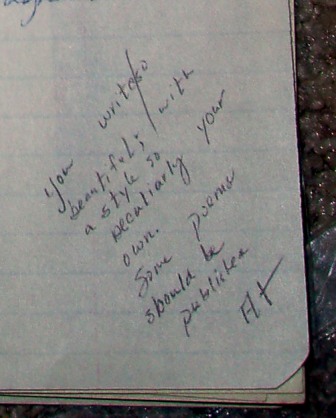 You write so
beautiful; with
a style so
peculiarly your
own.
Some poems
should be
published